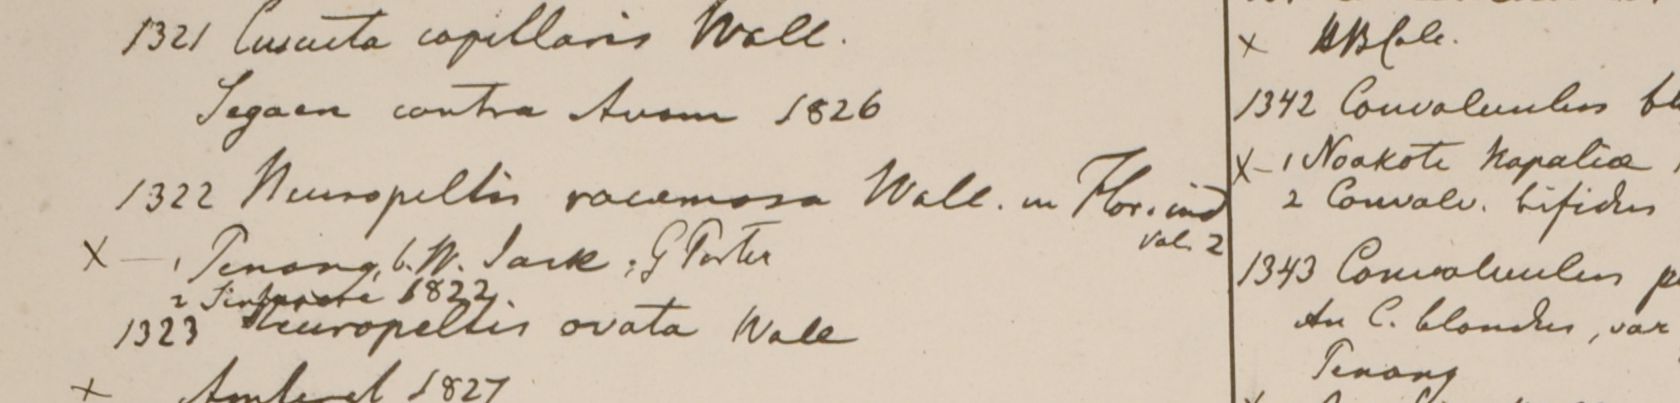 1321 Cuscuta capillaris Wall.
Segaen contra Avam 1826
1322 Neuropeltis racemosa Wall. in Flor. ind
vol. 2
X — 1 Penang, b. W. Jack ; G Porter
2 Singapore 1822.
1323 Neuropeltis ovata Wall
x Amherst 1827
x HBCalc.
1342 Convolvulus bl
X - 1 Noakote Napaliae
2 Convolv. bifidus
1343 Convolvulus p
An C. blandus, var
Penang